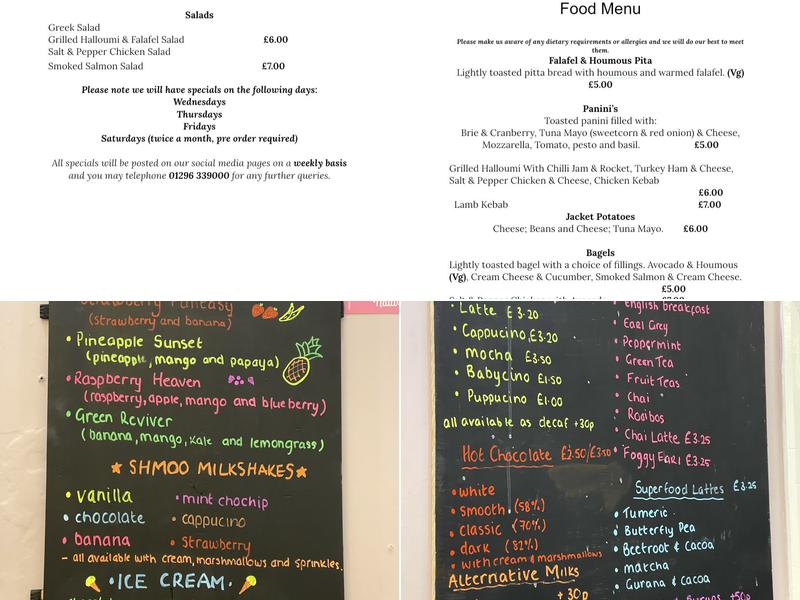 Salads
Greek Salad
Grilled Halloumi & Falafel Salad £6.00
Salt & Pepper Chicken Salad
Smoked Salmon Salad £7.00
Please note we will have specials on the following days:
Wednesdays
Thursdays
Fridays
Saturdays (twice a month, pre order required)
All specials will be posted on our social media pages on a weekly basis
and you may telephone 01296 339000 for any further queries.
Food Menu
Please make us aware of any dietary requirements or allergies and we will do our best to meet
them.
Falafel & Houmous Pita
Lightly toasted pitta bread with houmous and warmed falafel. (Vg)
£5.00
Panini's
Toasted panini filled with:
Brie & Cranberry, Tuna Mayo (sweetcorn & red onion) & Cheese,
Mozzarella, Tomato, pesto and basil. £5.00
Grilled Halloumi With Chilli Jam & Rocket, Turkey Ham & Cheese,
Salt & Pepper Chicken & Cheese, Chicken Kebab
£6.00
Lamb Kebab £7.00
Jacket Potatoes
Cheese; Beans and Cheese; Tuna Mayo. £6.00
Bagels
Lightly toasted bagel with a choice of fillings. Avocado & Houmous
(Vg), Cream Cheese & Cucumber, Smoked Salmon & Cream Cheese.
£5.00
Strawberry Fantasy
(strawberry and banana)
• Pineapple Sunset
(pineapple, mango and papaya)
• Raspberry Heaven
(raspberry, apple, mango and blueberry)
• Green Reviver
(banana, mango, kale and lemongrass)
★ SHMOO MILKSHAKES ★
• vanilla
• chocolate
• banana
• mint chochip
• cappucino
• Strawberry
- all available with cream, marshmallows and sprinkles.
• ICE CREAM •
• Latte £3.20
• Cappucino £3.20
• mocha £3.50
• Babycino £1.50
• Puppucino £1.00
all available as decaf +30p
Hot Chocolate £2.50/£3.50
• white
• smooth (58%)
• classic (70%)
• dark (82%)
• with cream & marshmallows
Alternative Milks
+30p
• English breakfast
• Earl Grey
• Peppermint
• Green Tea
• Fruit Teas
• Chai
• Rooibos
• Chai Latte £3.25
• Foggy Earl £3.25
Superfood Lattes £3.25
• Tumeric
• Butterfly Pea
• Beetroot & Cacoa
• matcha
• Gurana & Cacoa
+50p